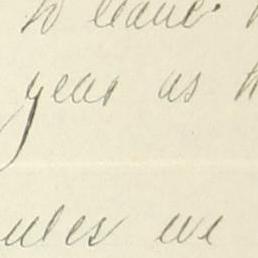 to leave
year as
ules we